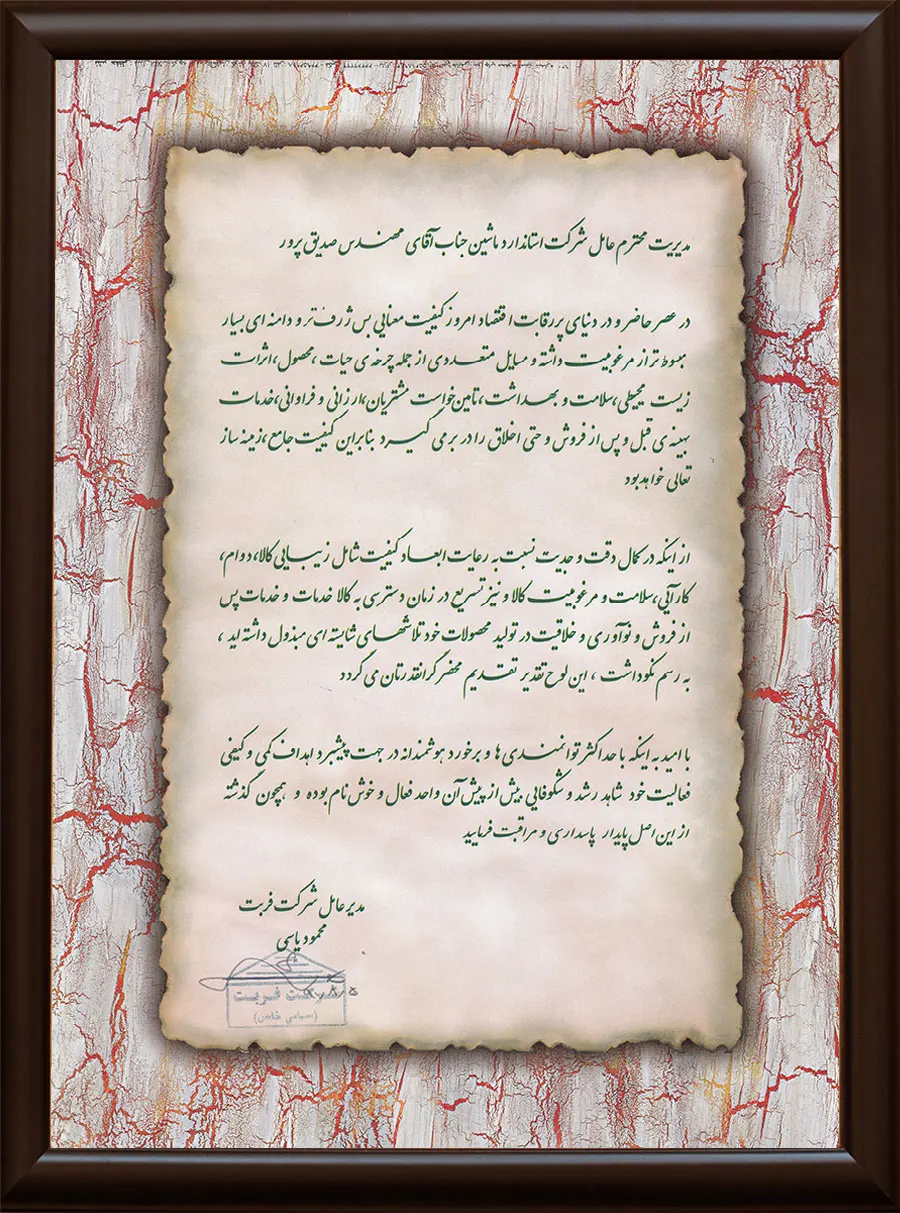 مدیریت محترم عامل شرکت استاندارد ماشین جناب آقای مهندس صدیق پرور
در عصر حاضر و در دنیای پررقابت اقتصاد امروز کیفیت معنایی بس ژرف تر و دامنه ای بسیار
مبسوط تر از مرغوبیت داشته و مسایل متعددی از جمله چرخه ی حیات ،محصول ،اثرات
زیست محیطی ،سلامت و بهداشت ،تامین خواست مشتریان ،ارزانی و فراوانی ،خدمات
بهینه ی قبل و پس از فروش و حتی اخلاق را در بر می گیرد بنابراین کیفیت جامع ،زمینه ساز
تعالی خواهد بود
از اینکه در کمال دقت و جدیت نسبت به رعایت ابعاد کیفیت شامل زیبایی کالا ،دوام ،
کارآیی ،سلامت و مرغوبیت کالا و نیز تسریع در زمان دسترسی به کالا خدمات و خدمات پس
از فروش و نوآوری و خلاقیت در تولید محصولات خود تلاشهای شایسته ای مبذول داشته اید ،
به رسم نکوداشت ، این لوح تقدیر تقدیم محضر گرانقدرتان می گردد
با امید به اینکه با حداکثر توانمندی ها و برخورد هوشمندانه در جهت پیشبرد اهداف کمی و کیفی
فعالیت خود شاهد رشد و شکوفایی بیش از پیش آن واحد فعال و خوش نام بوده و همچون گذشته
از این اصل پایدار پاسداری و مراقبت فرمایید
مدیر عامل شرکت فربت
محمود یاسی
شرکت فربت
(سهامی خاص)